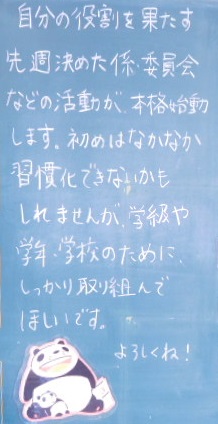 自分の役割を果たす
先週決めた係・委員会
などの活動が、本格始動
します。初めはなかなか
習慣化できないかも
しれませんが、学級や
学年・学校のために、
しっかり取り組んで
ほしいです。
よろしくね！